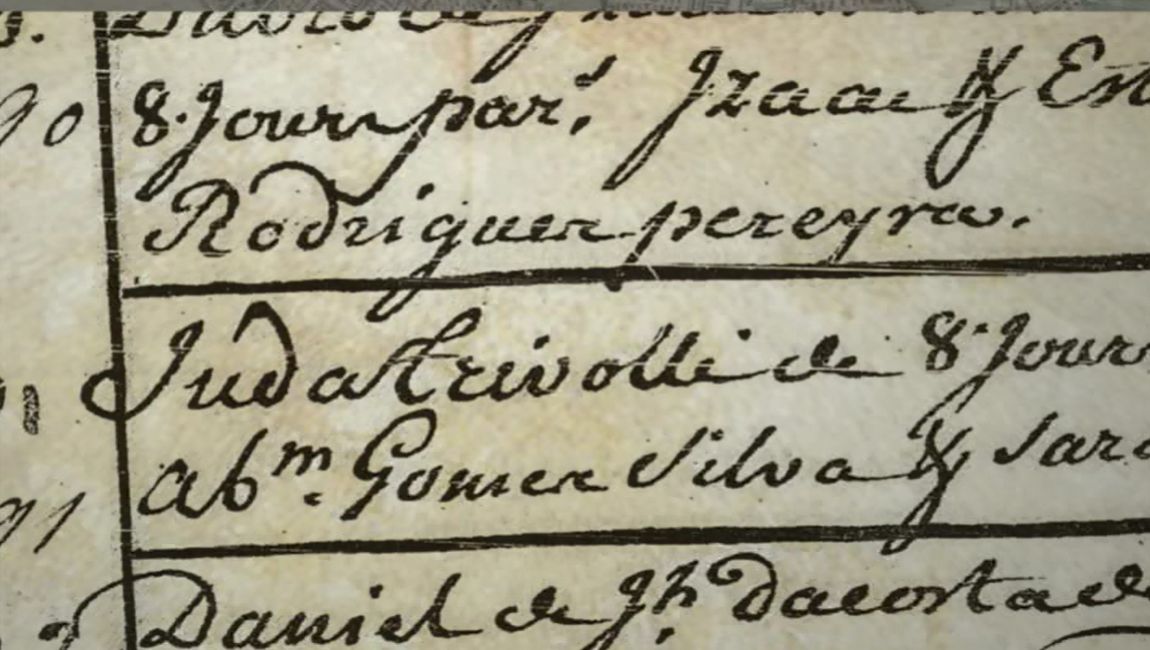 90 8. Jours par.^s Izaac & Est
Rodrigues pereyra.
Juda trivolli de 8. Jours
ab^m. Gomes Silva & Sara
91
Daniel de Jh. dacosta de